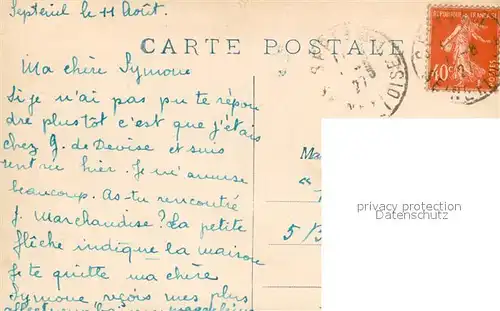 Septeuil le 11 Août.
CARTE POSTALE
REPUBLIQUE FRANCAISE
40c
27
OISE
Ma chère Symone
Si je n'ai pas pu te répon
dre plustôt c'est que j'étais
chez G. de Devise et suis
rentrée hier. Je m'amuse
beaucoup. As-tu rencontré
J. Marchandise? La petite
flèche indique la maison
Je te quitte ma chère
Symone reçois mes plus
Ma
5 B
privacy protection
Datenschutz